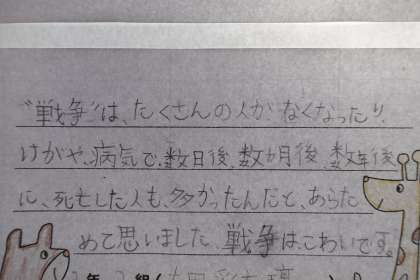 "戦争"は、たくさんの人がなくなったり、
けがや、病気で、数日後、数か月後、数年後
に、死亡した人も、多かったんだと、あらた
めて思いました。戦争は、こわいです。
年 組